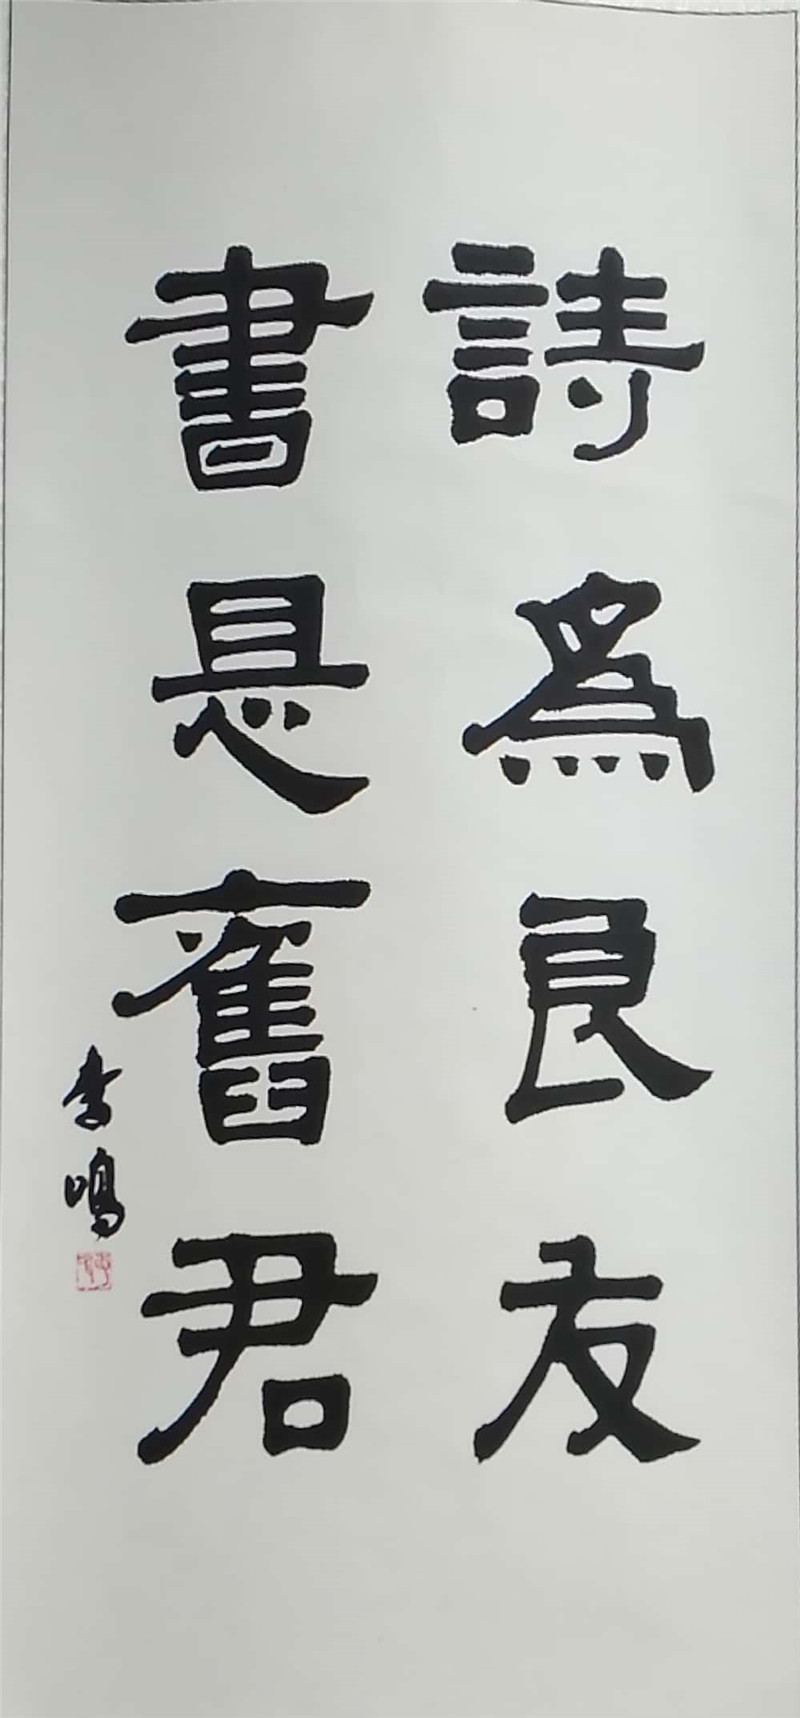 詩爲良友
書是舊君
李鳴